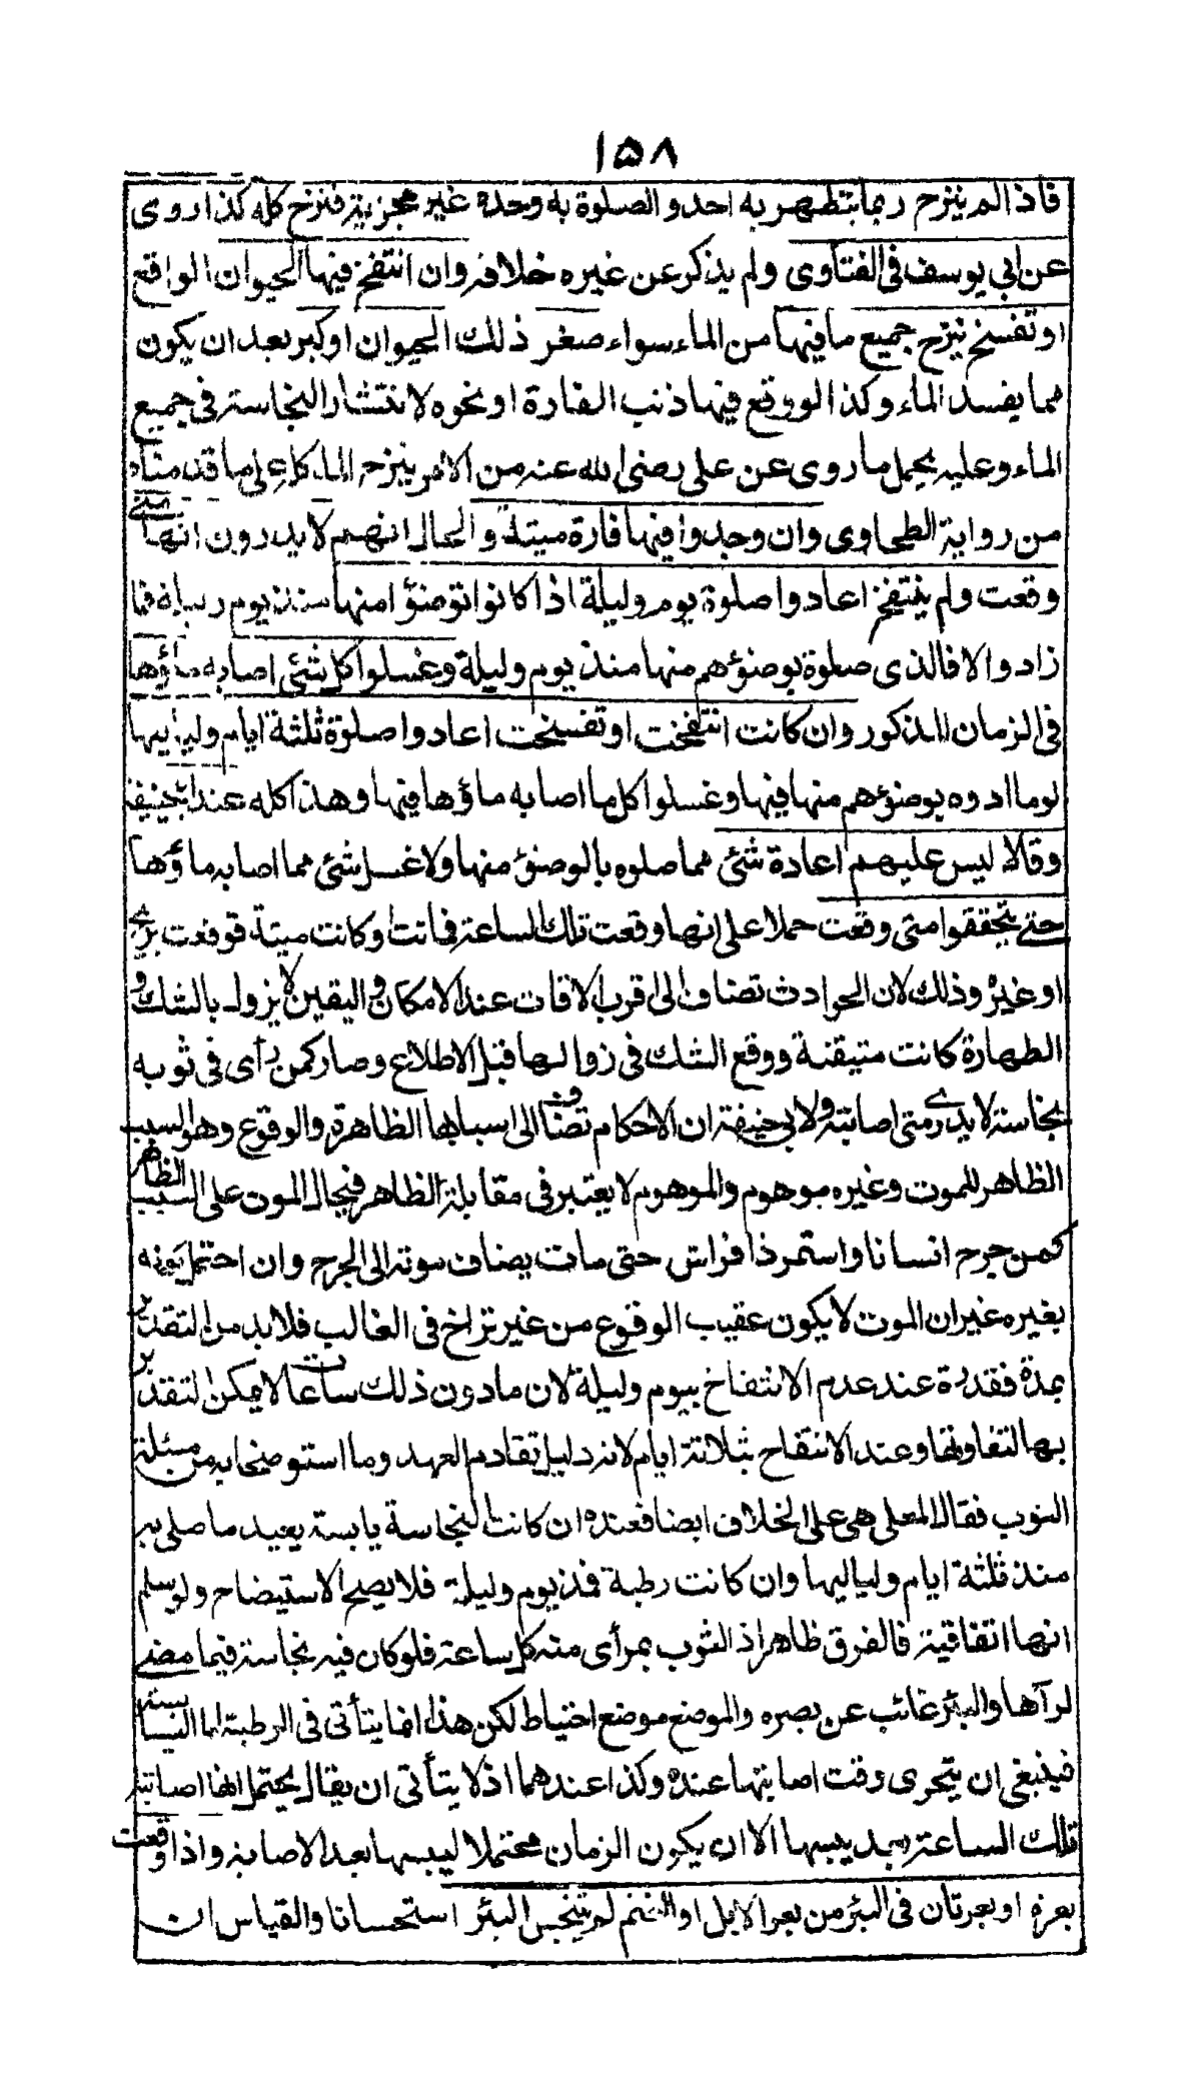 ١٥٨
فاذا لم ينزح ربما يتطهر به احد والصلوة به وحده غير مجزية فنزح كله كذا روى
عن ابي يوسف في الفتاوى ولم يذكر عن غيره خلافه وان انتفخ فيها الحيوان الواقع
او تفسخ نزح جميع ما فيها من الماء سواء صغر ذلك الحيوان او كبر بعد ان يكون
مما يفسد الماء وكذا لو وقع فيها ذنب الفارة او نحوه لانتشار النجاسة في جميع
الماء وعليه يحمل ما روى عن على رضى الله عنه من الامر بنزح الماء كله على ما قدمناه
من رواية الطحاوى وان وجدوا فيها فارة ميتة والحال انهم لا يدرون انها متى
وقعت ولم ينتفخ اعادوا صلوة يوم وليلة اذا كانوا توضؤا منها منذ يوم وليلة فما
زاد والا فالذى صلوة بوضؤهم منها منذ يوم وليلة وغسلوا كل شئى اصابه ماؤها
في الزمان المذكور وان كانت انتفخت او تفسخت اعادوا صلوة ثلثة ايام ولياليها
لو ما ادوه بوضوءهم منها فيها وغسلوا كل ما اصابه ماؤها فيها وهذا كله عند ابيحنيفة
وقالا ليس عليهم اعادة شئى مما صلوه بالوضؤ منها ولا غسل شئى مما اصابه ماؤها
حتى يتحققوا متى وقعت حملا على انها وقعت تلك الساعة فماتت او كانت ميتة فوقعت بريح
او غيره وذلك لان الحوادث تضاف الى اقرب الاوقات عند الامكان واليقين لا يزول بالشك و
الطهارة كانت متيقنة ووقع الشك في زوالها قبل الاطلاع وصار كمن رأى في ثوبه
نجاسة لا يدرى متى اصابته ولابي حنيفة ان الاحكام تضاف الى اسبابها الظاهرة والوقوع وهو السبب
الظاهر للموت وغيره موهوم والموهوم لا يعتبر فى مقابلة الظاهر فيحال الموت على السبب الظاهر
كمن جرح انسانا واستمر ذا فراش حتى مات يضاف موته الى الجرح وان احتمل كونه
بغيره غير ان الموت لا يكون عقيب الوقوع من غير تراخ فى الغالب فلا بد من التقدير
بمدة فقدره عند عدم الانتفاخ بيوم وليلة لان ما دون ذلك ساعات لا يمكن التقدير
بها لتفاوتها وعند الانتفاخ بثلاثة ايام لانه دليل تقادم العهد وما استوضحا به من مسئلة
الثوب فقال المعلى هى على الخلاف ايضا فعنده ان كانت النجاسة يابسة يعيد ما صلى به
منذ ثلثة ايام ولياليها وان كانت رطبة فمنذ يوم وليلة فلا يصح الاستيضاح ولو سلم
انها اتفاقية فالفرق ظاهر اذ الثوب بمرأى منه كل ساعة فلو كان فيه نجاسة فيما مضى
لرآها والبئر غائب عن بصره والموضع موضع احتياط لكن هذا انما يتأتى فى الرطبة اما اليابسة
فينبغى ان يتحرى وقت اصابتها عنده وكذا عندهما اذ لا يتأتى ان يقال يحتمل انها اصابته
تلك الساعة بعد يبسها الا ان يكون الزمان محتملا ليبسها بعد الاصابة واذا وقعت
بعرة او بعرتان فى البئر من بعر الابل او الغنم لم يتنجس البئر استحسانا والقياس ان